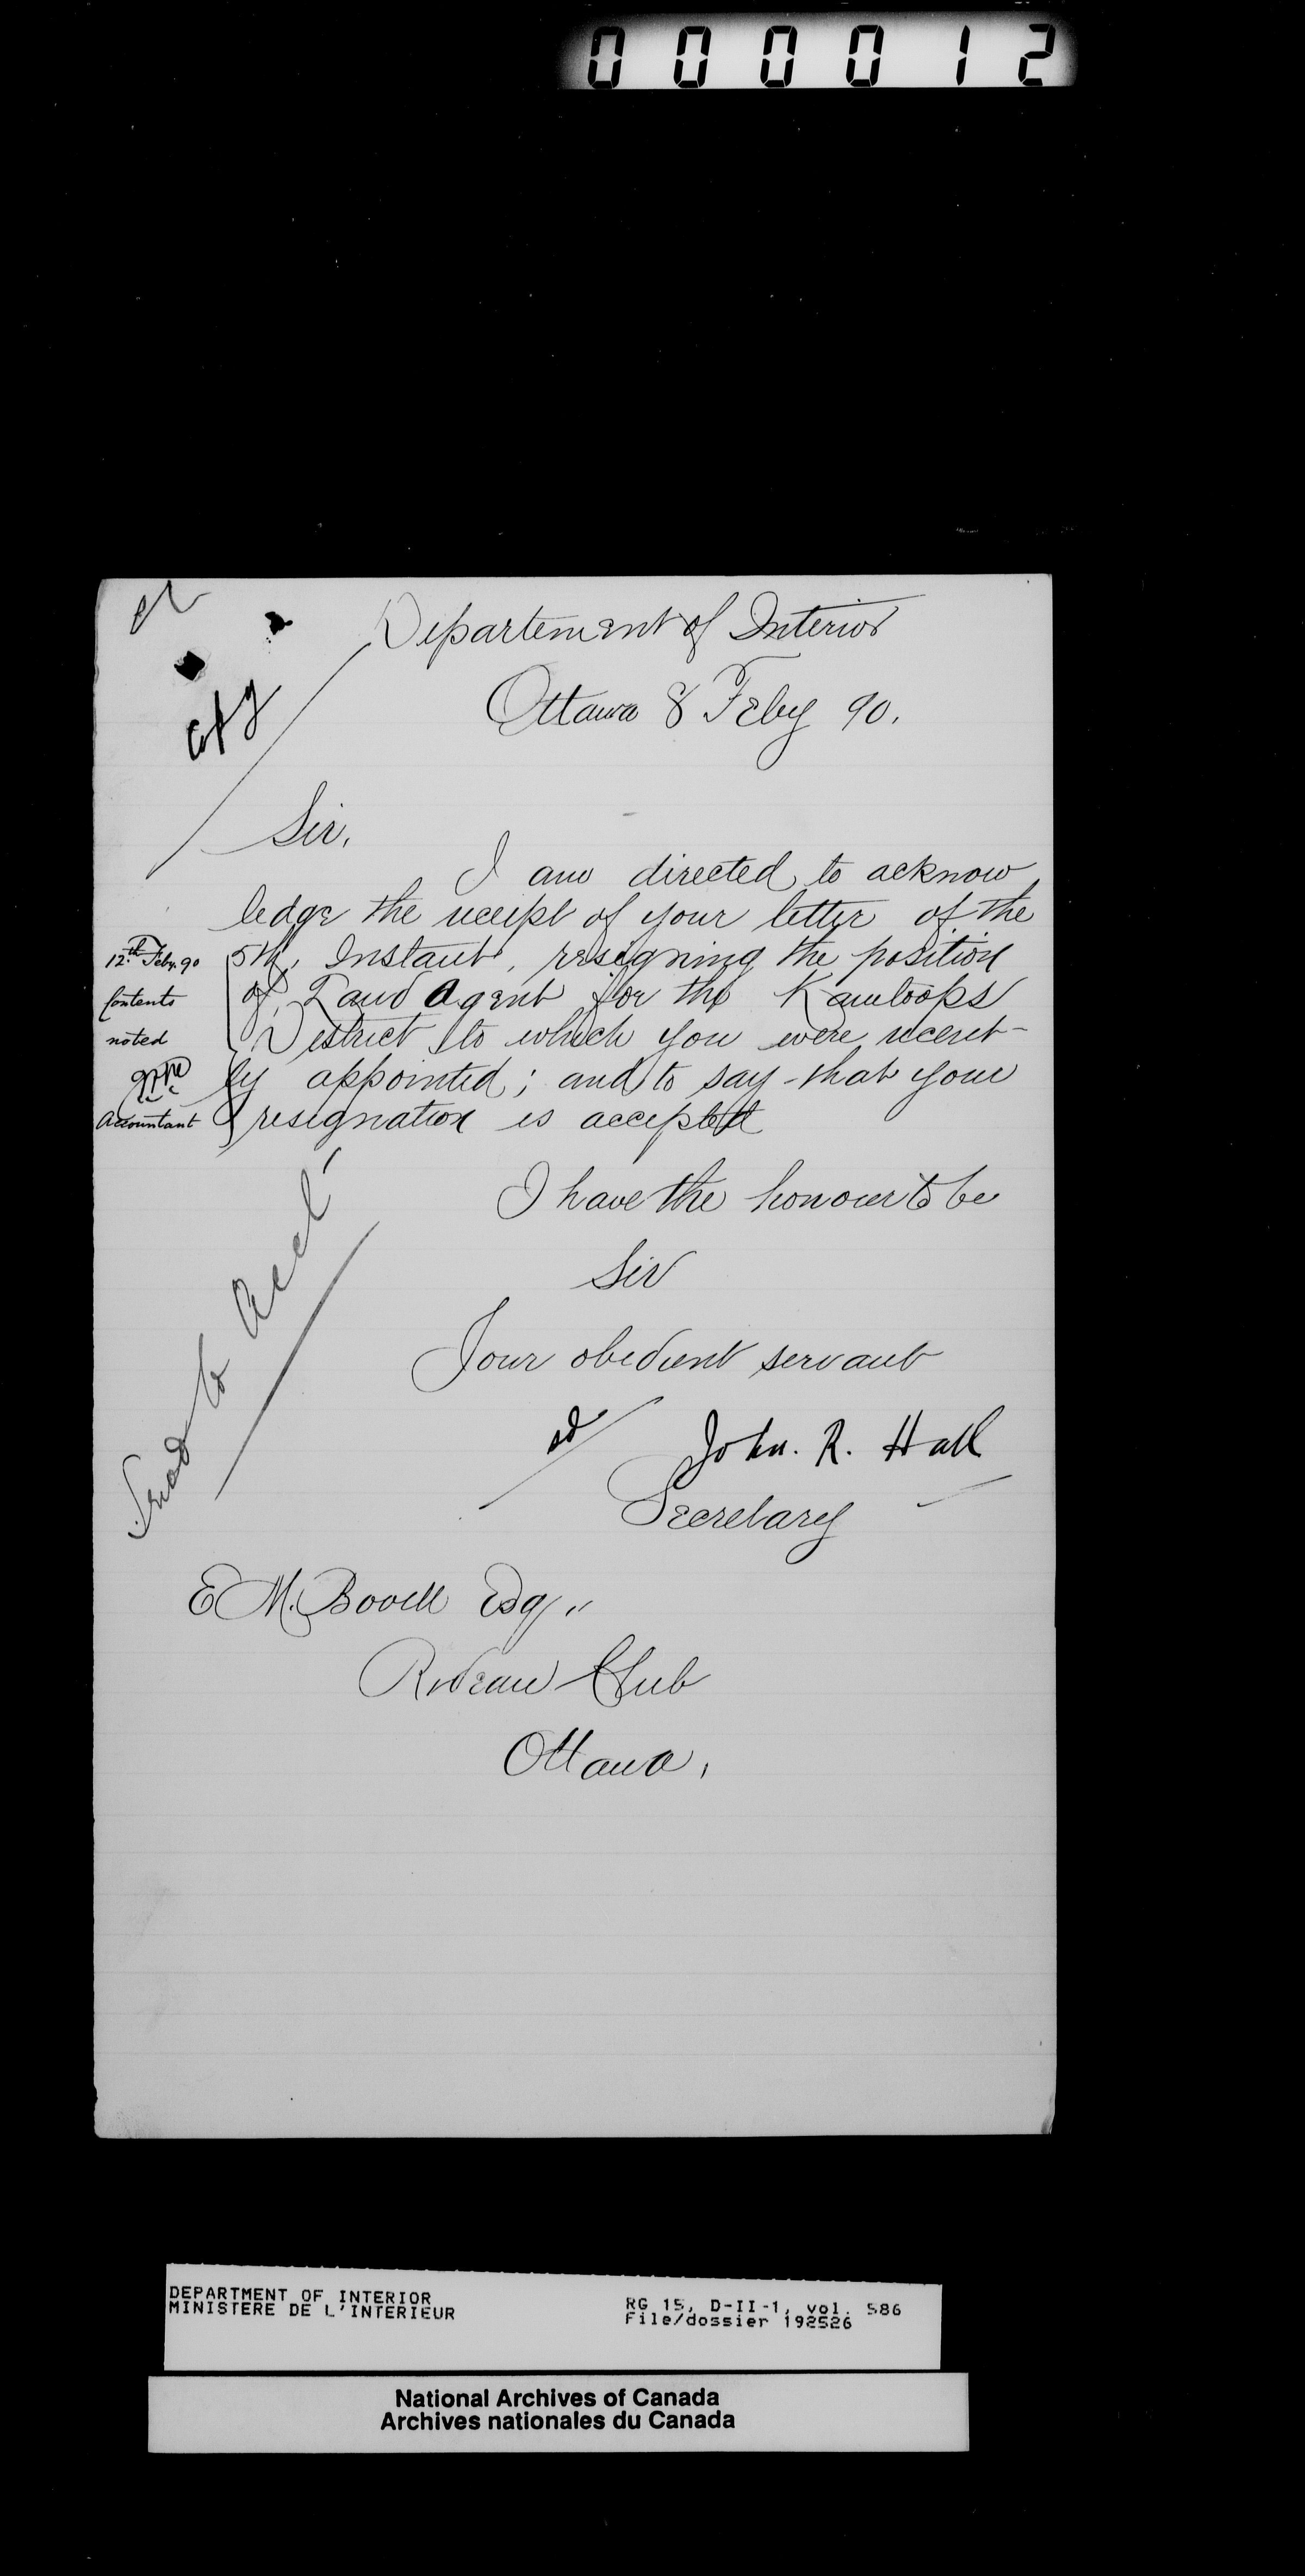 000012
Departement of Interior
Ottawa 8 Feby 90.
Sir,
I am directed to acknow
ledge the receipt of your letter of the
5th, Instant, resigning the position
of Land Agent for the Kamloops
District to which you were recent-
ly appointed; and to say that your
resignation is accepted
12th Feby. 90
Contents
noted
Accountant
Send to Acct
I have the honour to be
Sir
Your obedient servant
sd/ John. R. Hall
Secretary
E M. Bovell Esq,,
Rideau Club
Ottawa,
DEPARTMENT OF INTERIOR
MINISTERE DE L'INTERIEUR
RG 15, D-II-1, vol. 586
File/dossier 192526
National Archives of Canada
Archives nationales du Canada